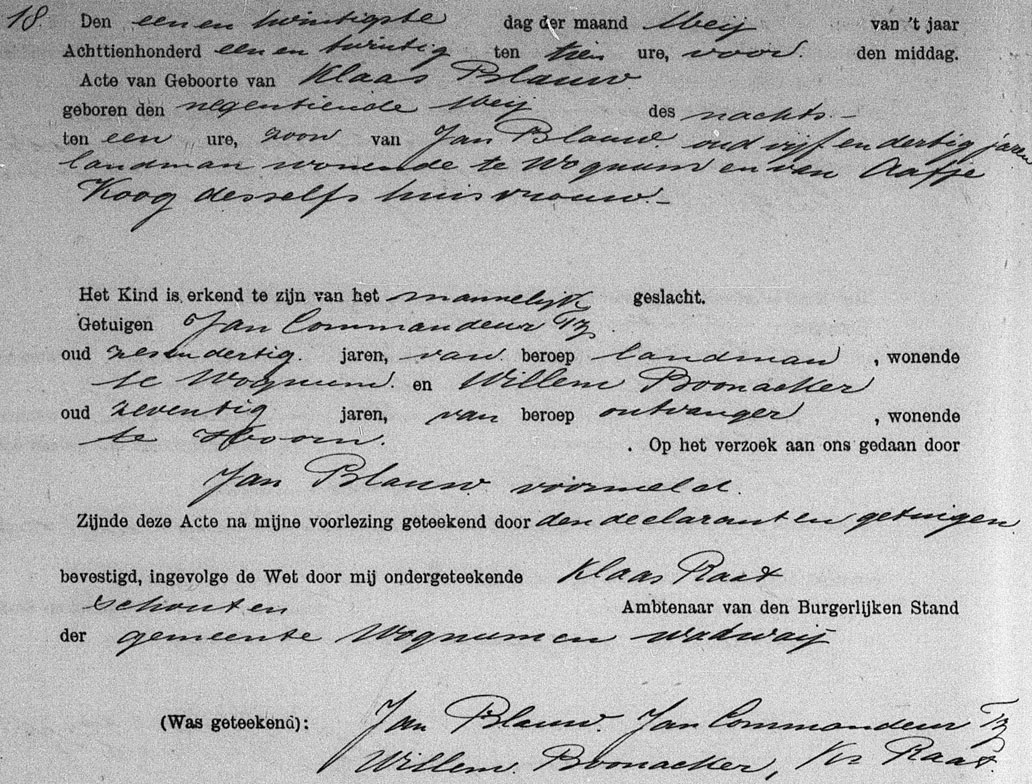 18 Den een en twintigste dag der maand Meij van 't jaar
Achttienhonderd een en twintig ten tien ure, voor den middag.
Acte van Geboorte van Klaas Blauw
geboren den negentiende Meij des nachts
ten een ure, zoon van Jan Blauw oud vijf en dertig jaren
landman wonende te Wognum en van Aafje
Koog desselfs huisvrouw.
Het Kind is erkend te zijn van het mannelijk geslacht.
Getuigen Jan Commandeur Tz
oud zesendertig jaren, van beroep landman, wonende
te Wognum en Willem Boonacker
oud zeventig jaren, van beroep ontvanger, wonende
te Hoorn. . Op het verzoek aan ons gedaan door
Jan Blauw voormeld.
Zijnde deze Acte na mijne voorlezing geteekend door den declarant en getuigen
bevestigd, ingevolge de Wet door mij ondergeteekende Klaas Raat
Schout en Ambtenaar van den Burgerlijken Stand
der gemeente Wognum en Wadwaij
(Was geteekend): Jan Blauw. Jan Commandeur Tz
Willem Boonacker, Ks Raat